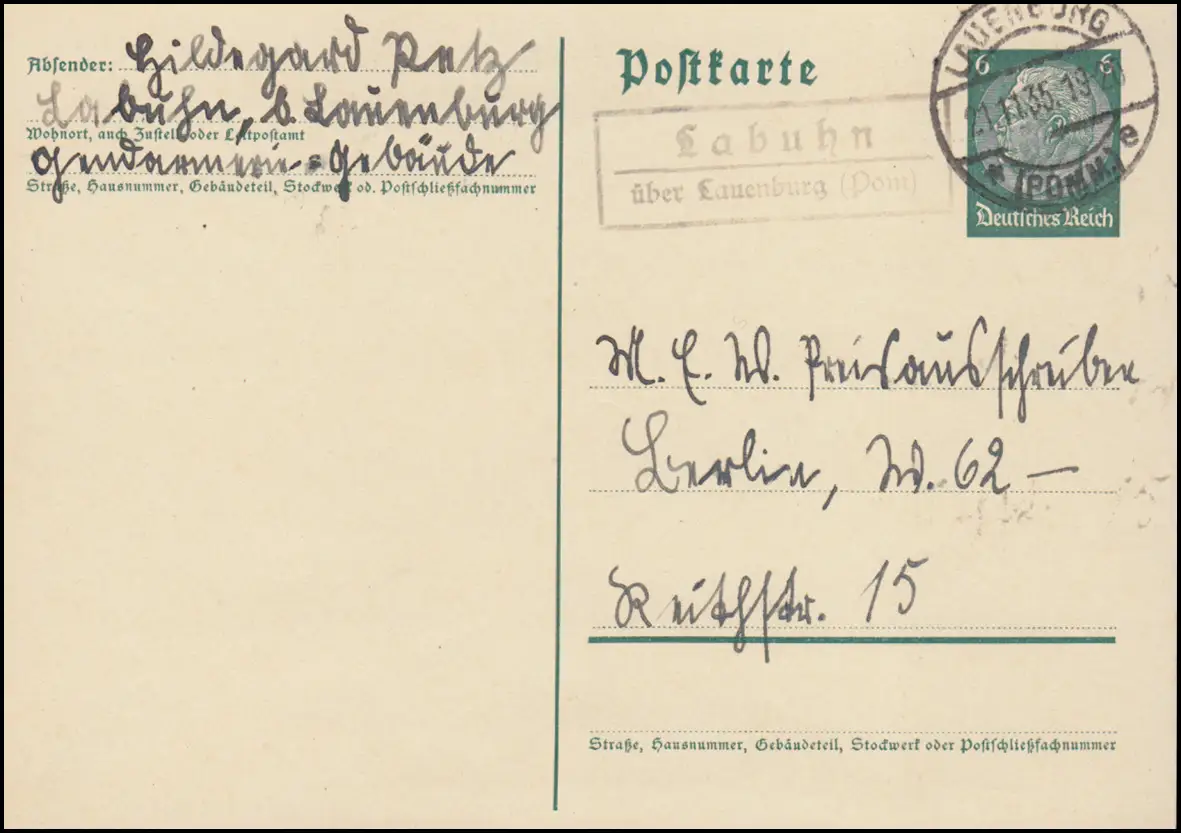 Absender: Hildegard Petz
Labuhn, b. Lauenburg
Wohnort, auch Zustell- oder Leitpostamt
Gendarmerie=Gebäude
Straße, Hausnummer, Gebäudeteil, Stockwerk od. Postschließfachnummer
Postkarte
Labuhn
über Lauenburg (Pom)
LAUENBURG
35.19
e
* (POMM.)
6 6
Deutsches Reich
M. E. W. Preisausschreiben
Berlin, W. 62 —
15
Straße, Hausnummer, Gebäudeteil, Stockwerk oder Postschließfachnummer